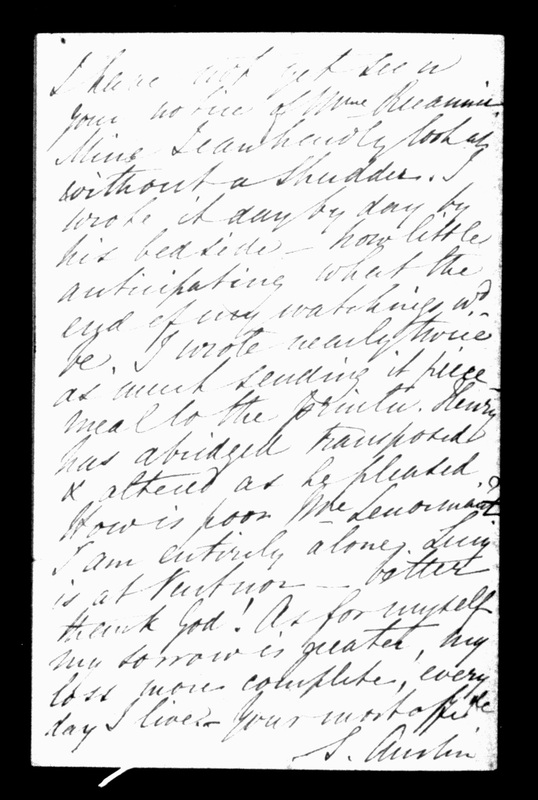 I have not yet seen
your notice of Mme Récamier
Mine I can hardly look at
without a shudder. I
wrote it day by day by
his bedside – how little
anticipating what the
end of my watchings wd
be. I wrote nearly twice
as much sending it piece
meal to the printer. Henry
has abridged transposed
& altered as he pleased.
How is poor Mme Lenormant
I am entirely alone. Lucy
is at Ventnor – better
thank God! As for myself
my sorrow is greater, my
loss more complete, every
day I live – Your most affte
S. Austin